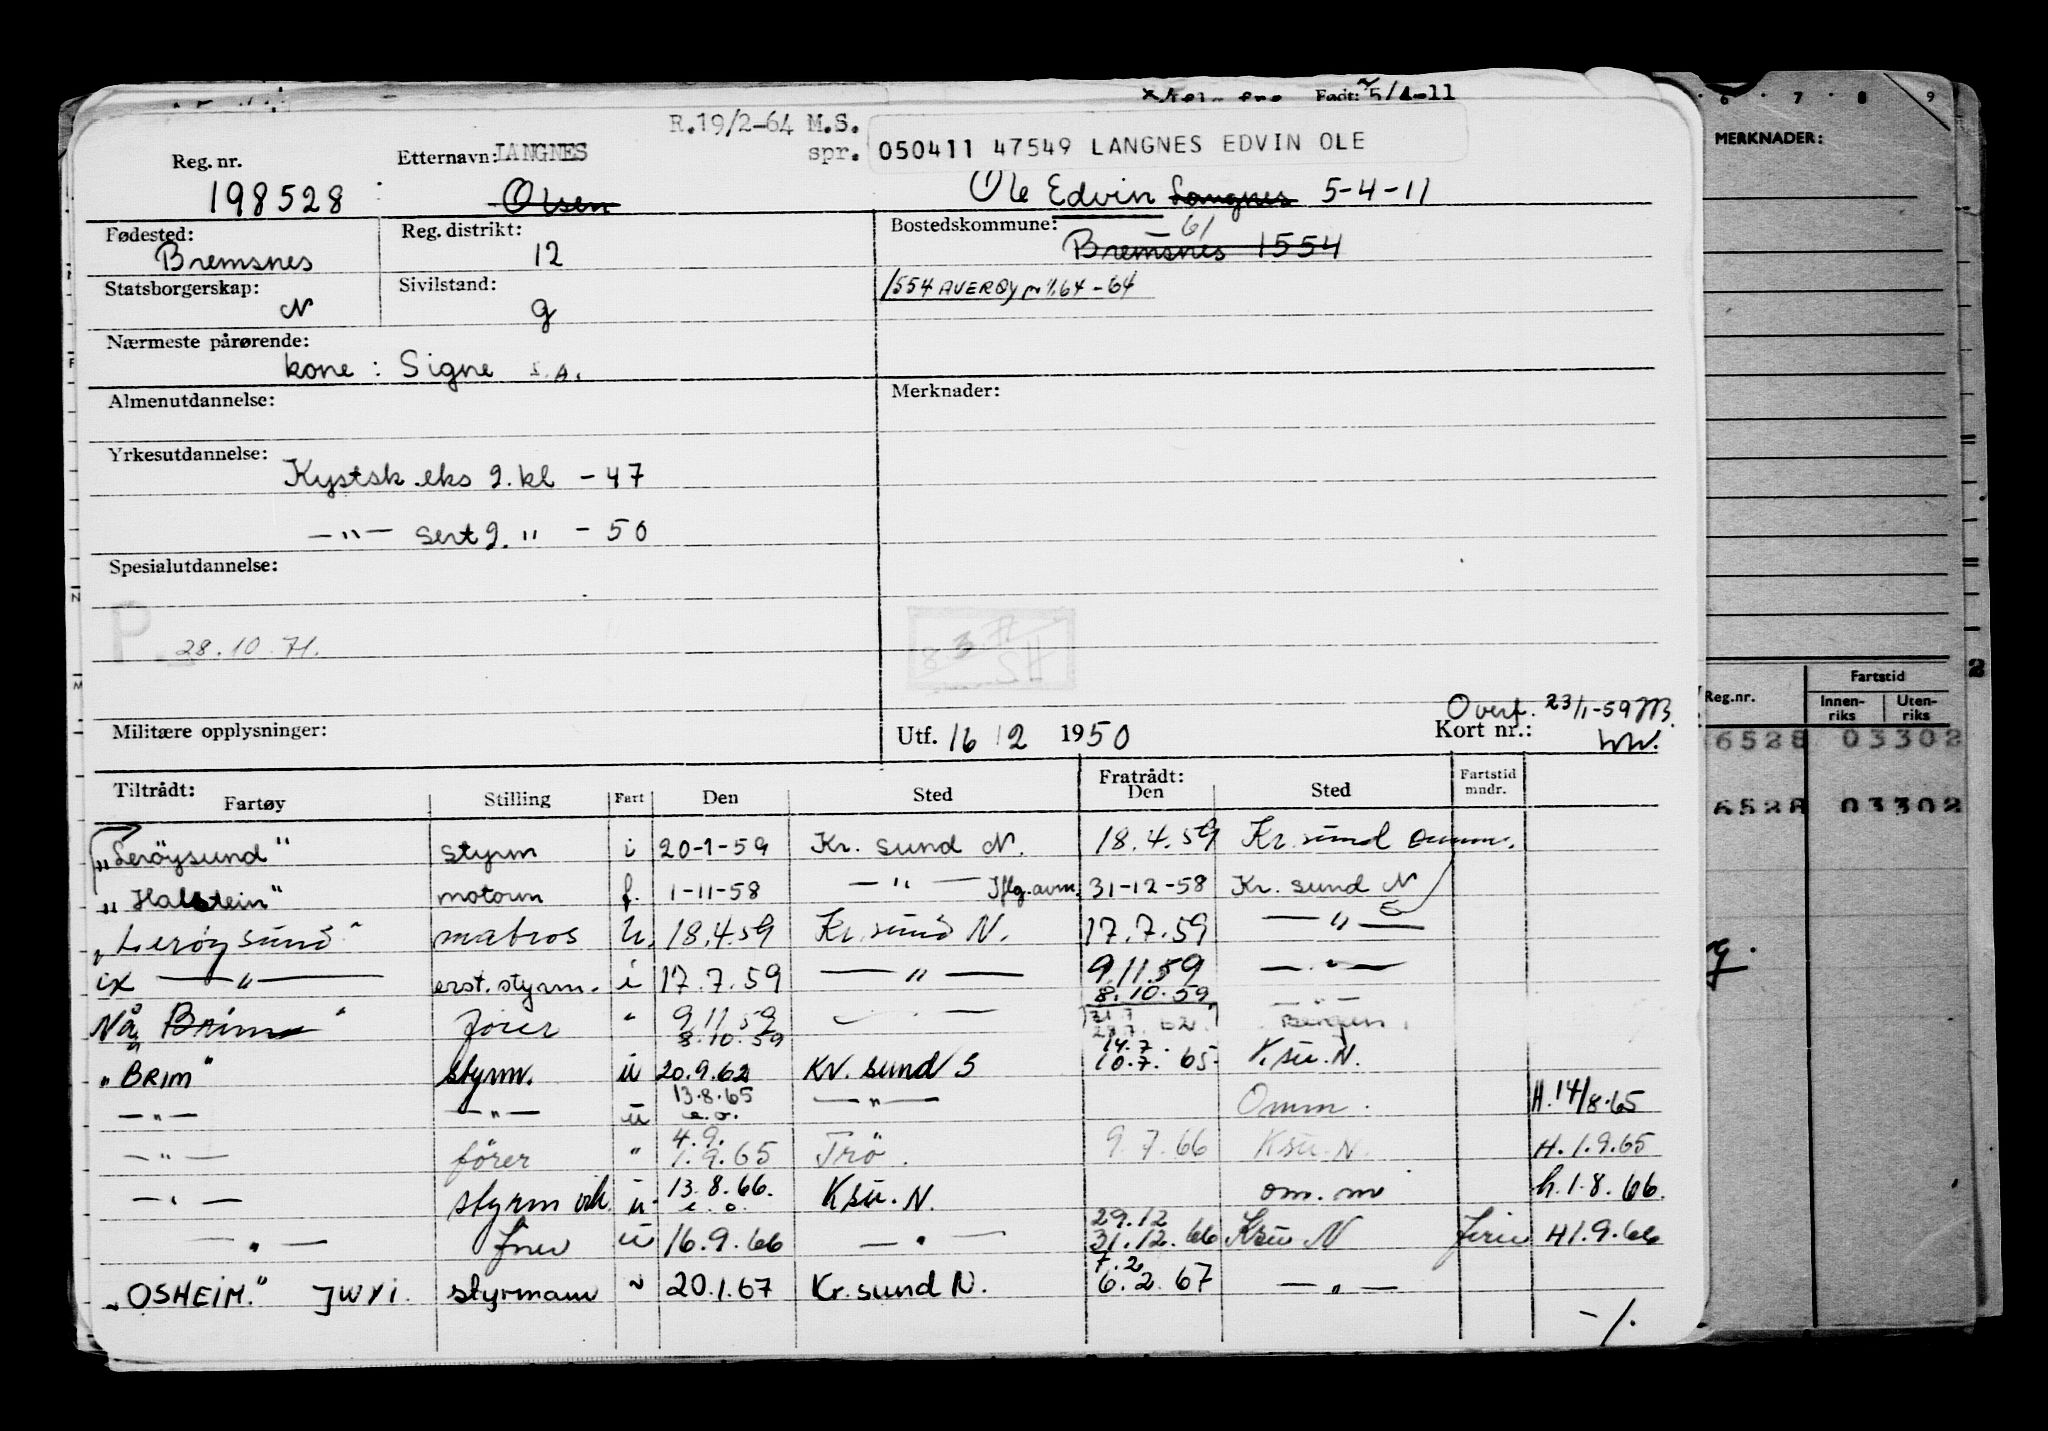 Født: 5/4-11
R.19/2-64 M.S.
spr. 050411 47549 LANGNES EDVIN OLE
Reg. nr. 198528
Etternavn: LANGNES
Olsen
Ole Edvin Langnes 5-4-11
Fødested: Bremsnes
Reg. distrikt: 12
Bostedskommune: 61
Bremsnes 1554
1554 AVERØY 64-64
Statsborgerskap: N
Sivilstand: g
Nærmeste pårørende:
kone: Signe s.a.
Almenutdannelse:
Merknader:
Yrkesutdannelse:
Kystsk.eks 2. kl - 47
-"- sert 2. " - 50
Spesialutdannelse:
P.
28.10.71.
Militære opplysninger:
Utf. 16 12 1950
Overf. 23/1-59
Kort nr.:
Tiltrådt: Fratrådt:
Fartøy Stilling Fart Den Sted Den Sted Fartstid mndr.
"Lerøysund" styrm i 20-1-59 Kr. sund N. 18.4.59 Kr. sund omm.
"Halstein" motorm f. 1-11-58 -"- 31-12-58 Kr. sund N
"Lerøysund" matros 18.4.59 Kr. sund N. 17.7.59 -"-
ex -"- erst. styrm. i 17.7.59 -"- 9.11.59 -"-
8.10.59
Nå Brim" fører " 9.11.59 Bergen
8.10.59
14.7.
"BRIM" styrm. ü 20.9.62 Kr. sund S 10.7.65 K.su.N.
13.8.65
-"- -"- ü e.o. -"- Omm. H.14/8.65
4.9.
-"- fører " 1.9.65 Trö. 9.7.66 Ksu.N. H.1.9.65
-"- styrm ü 13.8.66. e.o. Ksu.N. om.m h.1.8.66.
29.12
-"- ü 16.9.66 -"- 31.12.66 Ksu N H1.9.66
7.2
"OSHEIM." JWYI. styrmann 20.1.67 Kr. sund N. 6.2.67 -"-
-/.
6 7 8 9
MERKNADER:
Reg.nr. Fartstid
Innen-riks Uten-riks
6528 03302
6528 03302
2